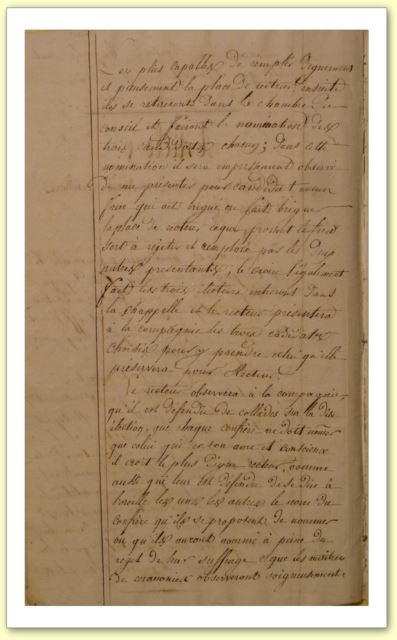 Les plus capables de remplir dignement
et pieusement la place de recteur, ensuite
ils se retireront dans la chambre de
conseil et feront la nomination des
trois candidats choisy; dans cette
nomination il sera empressement observé
de ne présenter pour candidat aucun
frere qui ait brigué ou fait brigue
la place de recteur, ce qui
sort à rejeter et employé pas les Dep
putés présentants; le également
fait les trois électeurs entreront dans
la chappelle et le recteur presentera
à la compagnie les trois cadidats
choisis pour y prendre celui qu'elle
préservera pour Recteur.
Le recteur observera à la compagnie,
qu'il est défendu de sur la dis
tribution, que chaque confrère ne doit nommer
que celui qui en son ame et conscience
il croit le plus digne recteur, comme
aussi que leur est défendu de se dire à
l'oreille les uns les autres le nom du
confrère qu'ils se proposent de nommer
ou qu'ils auront nommé à peine du
rejet de leur suffrage et que les maîtres
de ceremonies observeront soigneusement,